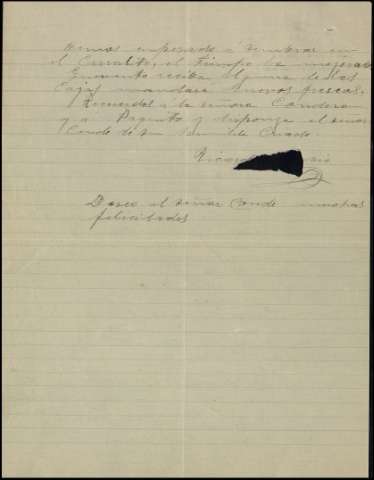 Hemos empesado á sembrar en
el Corralito, el tiempo ha mejorado
Cuanto reciba alguna de las
Cajas mandaré huevos frescos.
Recuerdos á la señora Condesa
y a Paquito y disponga el señor
Conde de su
Ricardo
Deseo al señor Conde muchas
felicidades